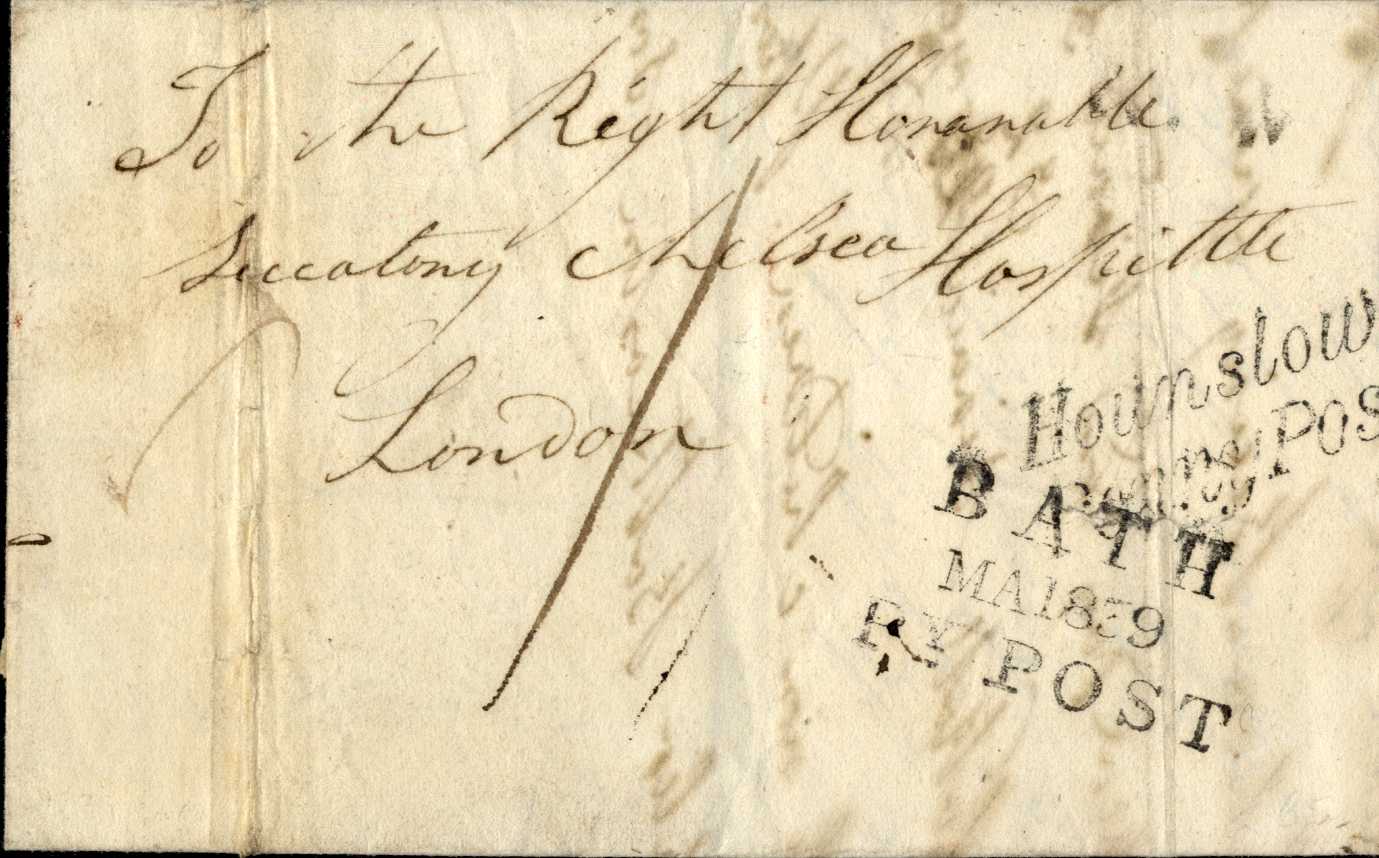 To the Right Honarable
Seccatony Chelsea Hospittle
London
Hounslow
Penny POS
BATH
MA 1839
PY POST